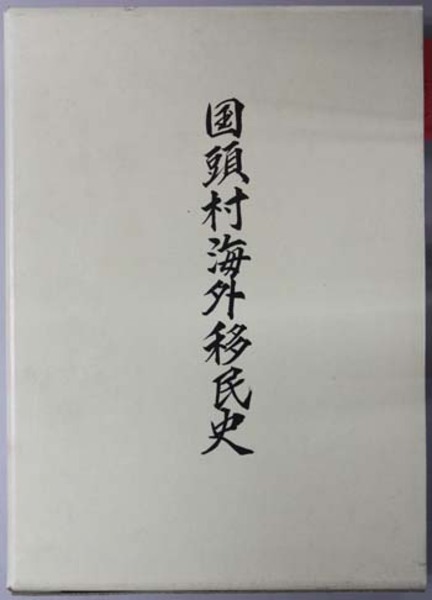 国頭村海外移民史